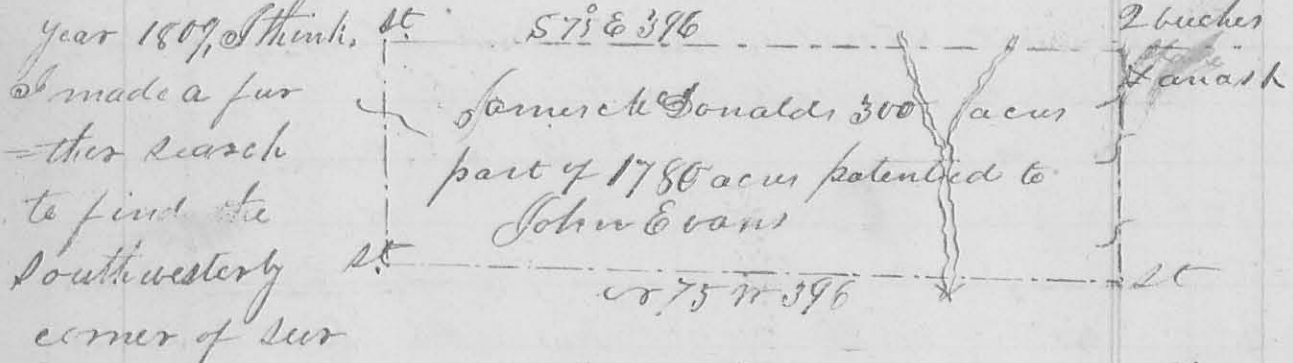 year 1809, I think.
I made a fur
=ther search
to find the
Southwesterly
corner of sur
st.
S 75° E 396
2 beeches
& an ash
James McDonalds 300 acres
part of 1780 acres patented to
John Evans
st.
N 75 W 396
st